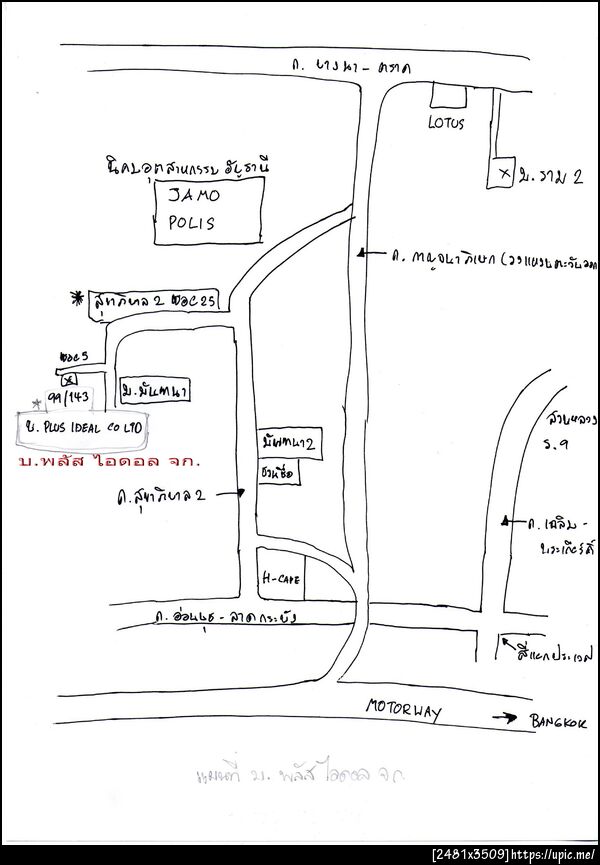 ถ. บางนา - ตราด
LOTUS
ม. ราม 2
นิคมอุตสาหกรรม อัญธานี
JAMO
POLIS
ถ. กาญจนาภิเษก (วงแหวนตะวันออก
* สุขาภิบาล 2 ซอย 25
ซอย 5
X
* 99/143
ม. มัณฑนา
บ. PLUS IDEAL CO LTD
บ.พลัส ไอดอล จก.
มัณฑนา 2
ชวนชื่น
ถ. สุขาภิบาล 2
สวนหลวง
ร. 9
ถ. เฉลิม -
พระเกียรติ์
H-CAPE
ถ. อ่อนนุช - ลาดกระบัง
สี่แยกประเวศ
MOTORWAY
BANGKOK
แผนที่ บ. พลัส ไอดอล จก.
[2481x3509]https://upic.me/